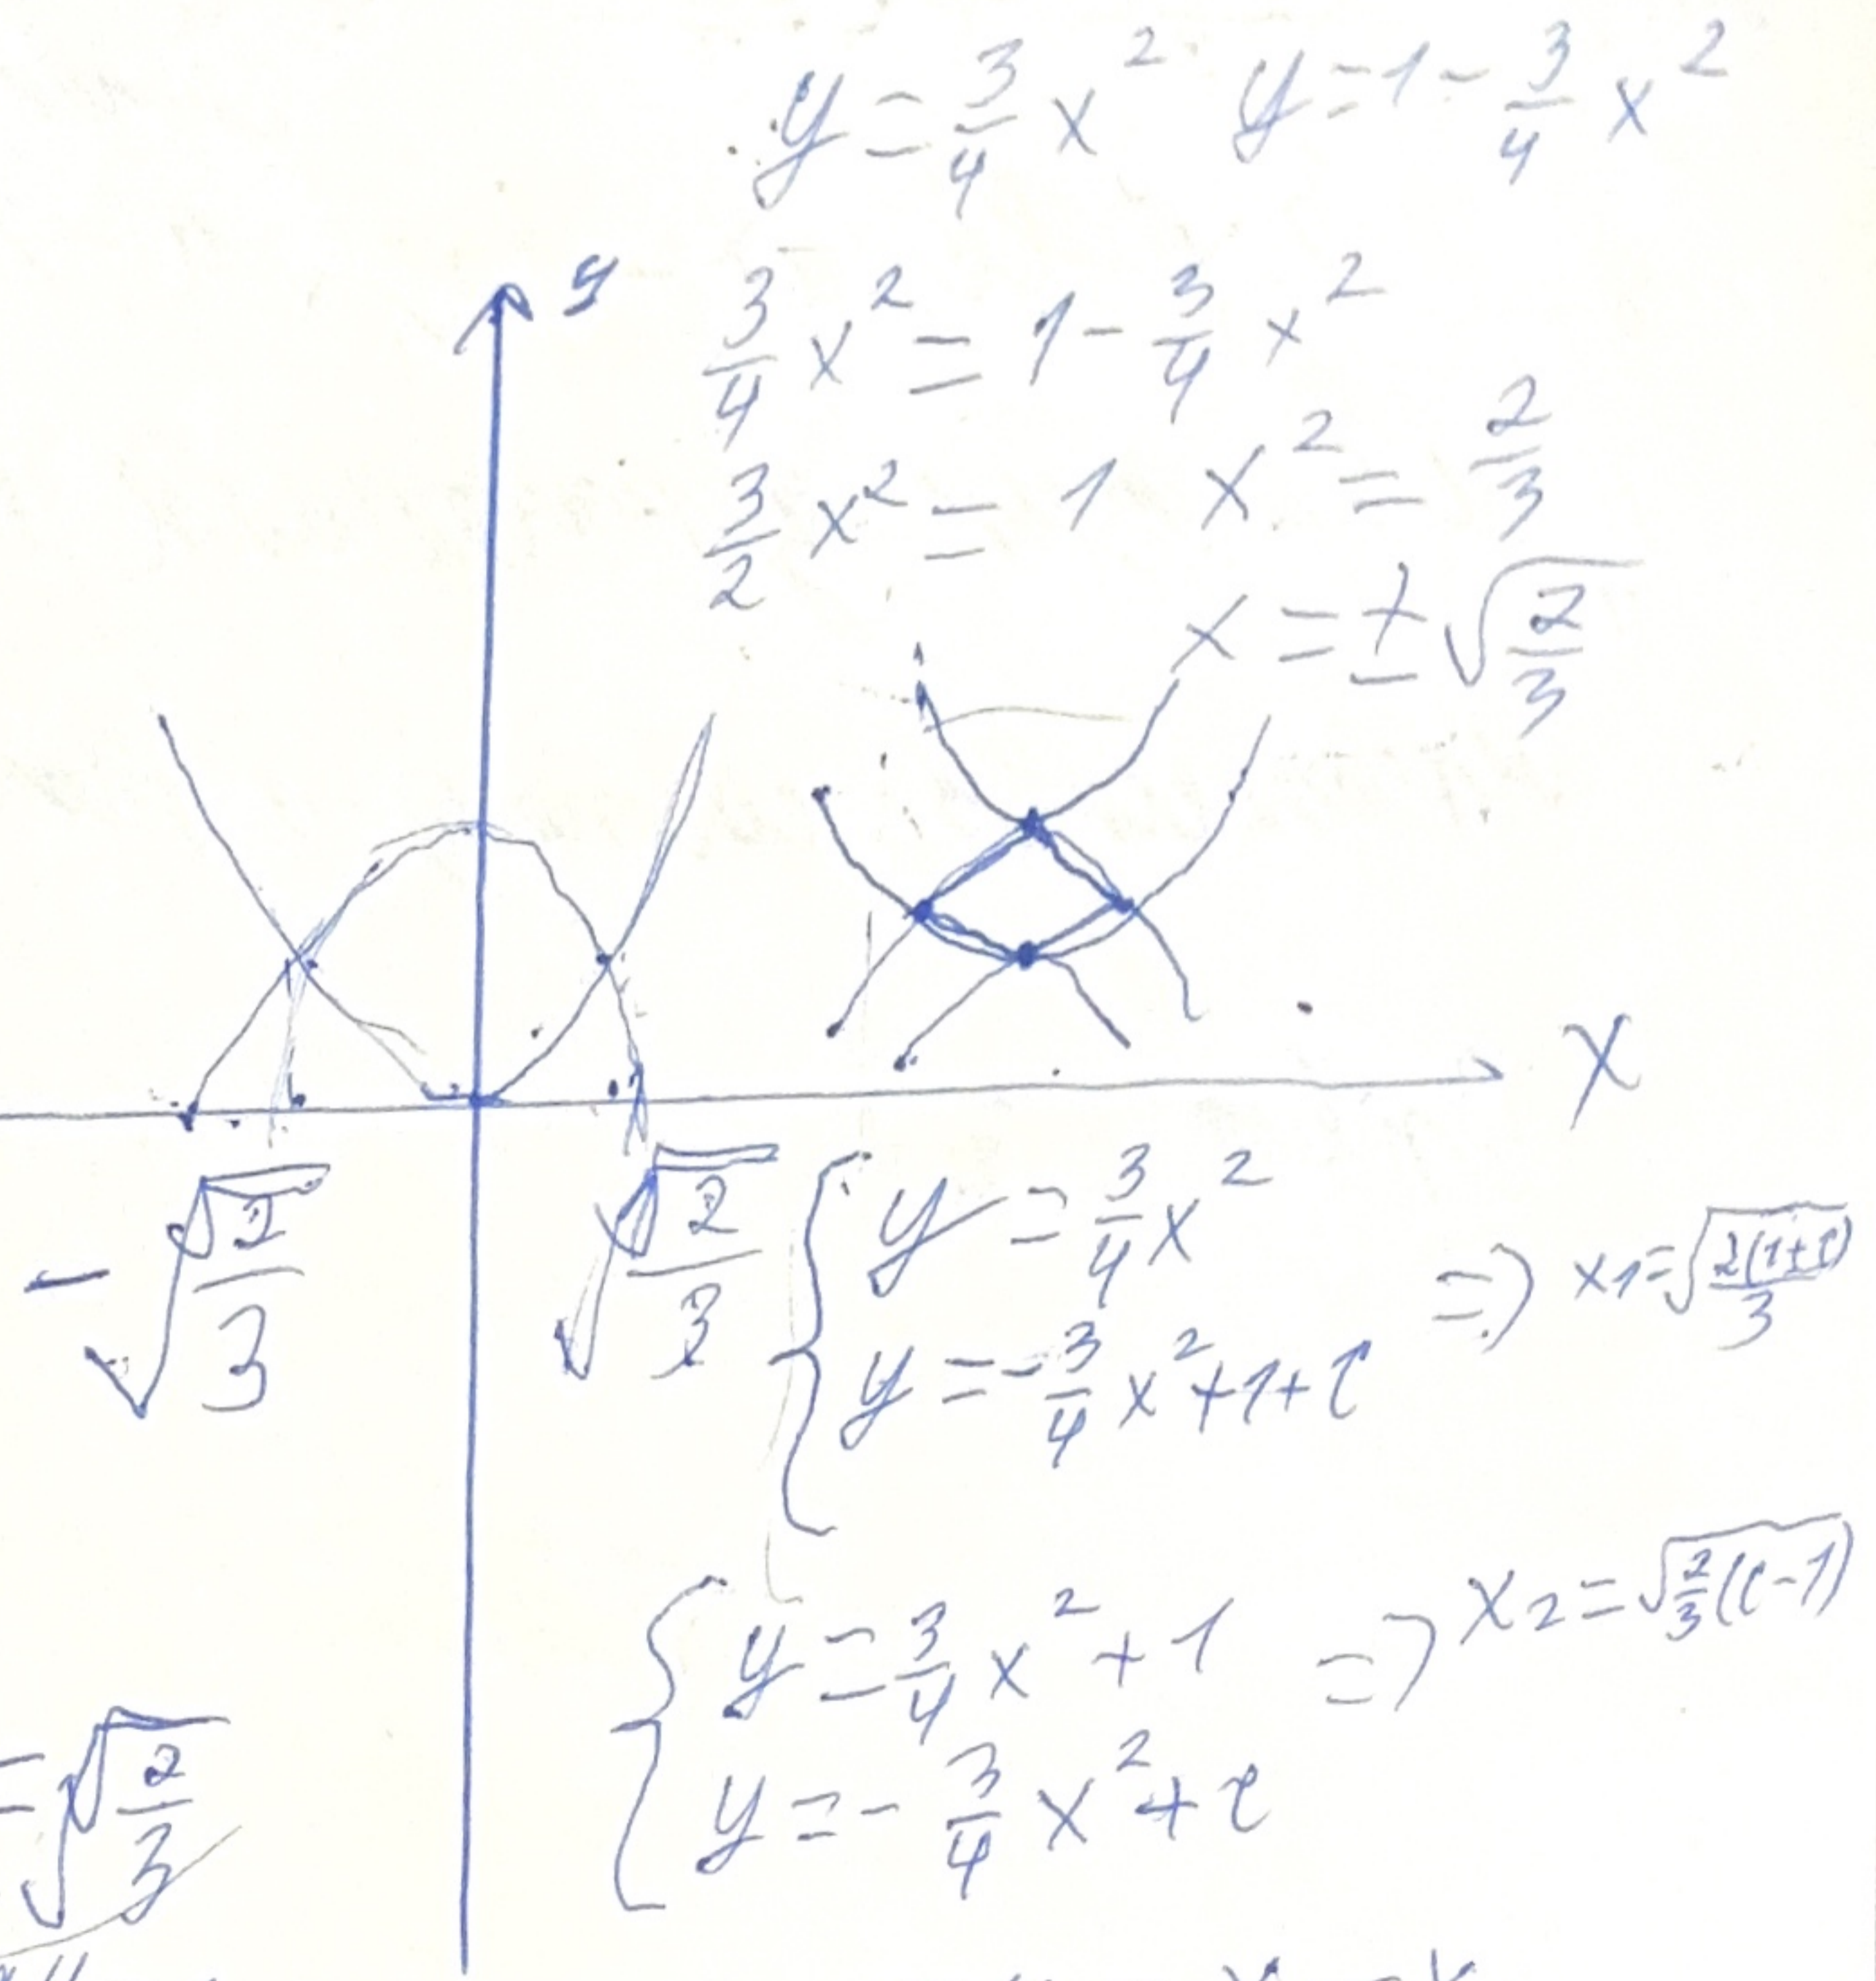 y = 3/4 x² y = 1 - 3/4 x²
y
3/4 x² = 1 - 3/4 x²
3/2 x² = 1 x² = 2/3
x = ± √(2/3)
X
-√(2/3) √(2/3)
{ y = 3/4 x²
y = -3/4 x² + 1 + c => x1 = √(2(1+c)/3)
{ y = 3/4 x² + 1 => x2 = √(2/3 (c-1))
y = - 3/4 x² + c
= √(2/3)